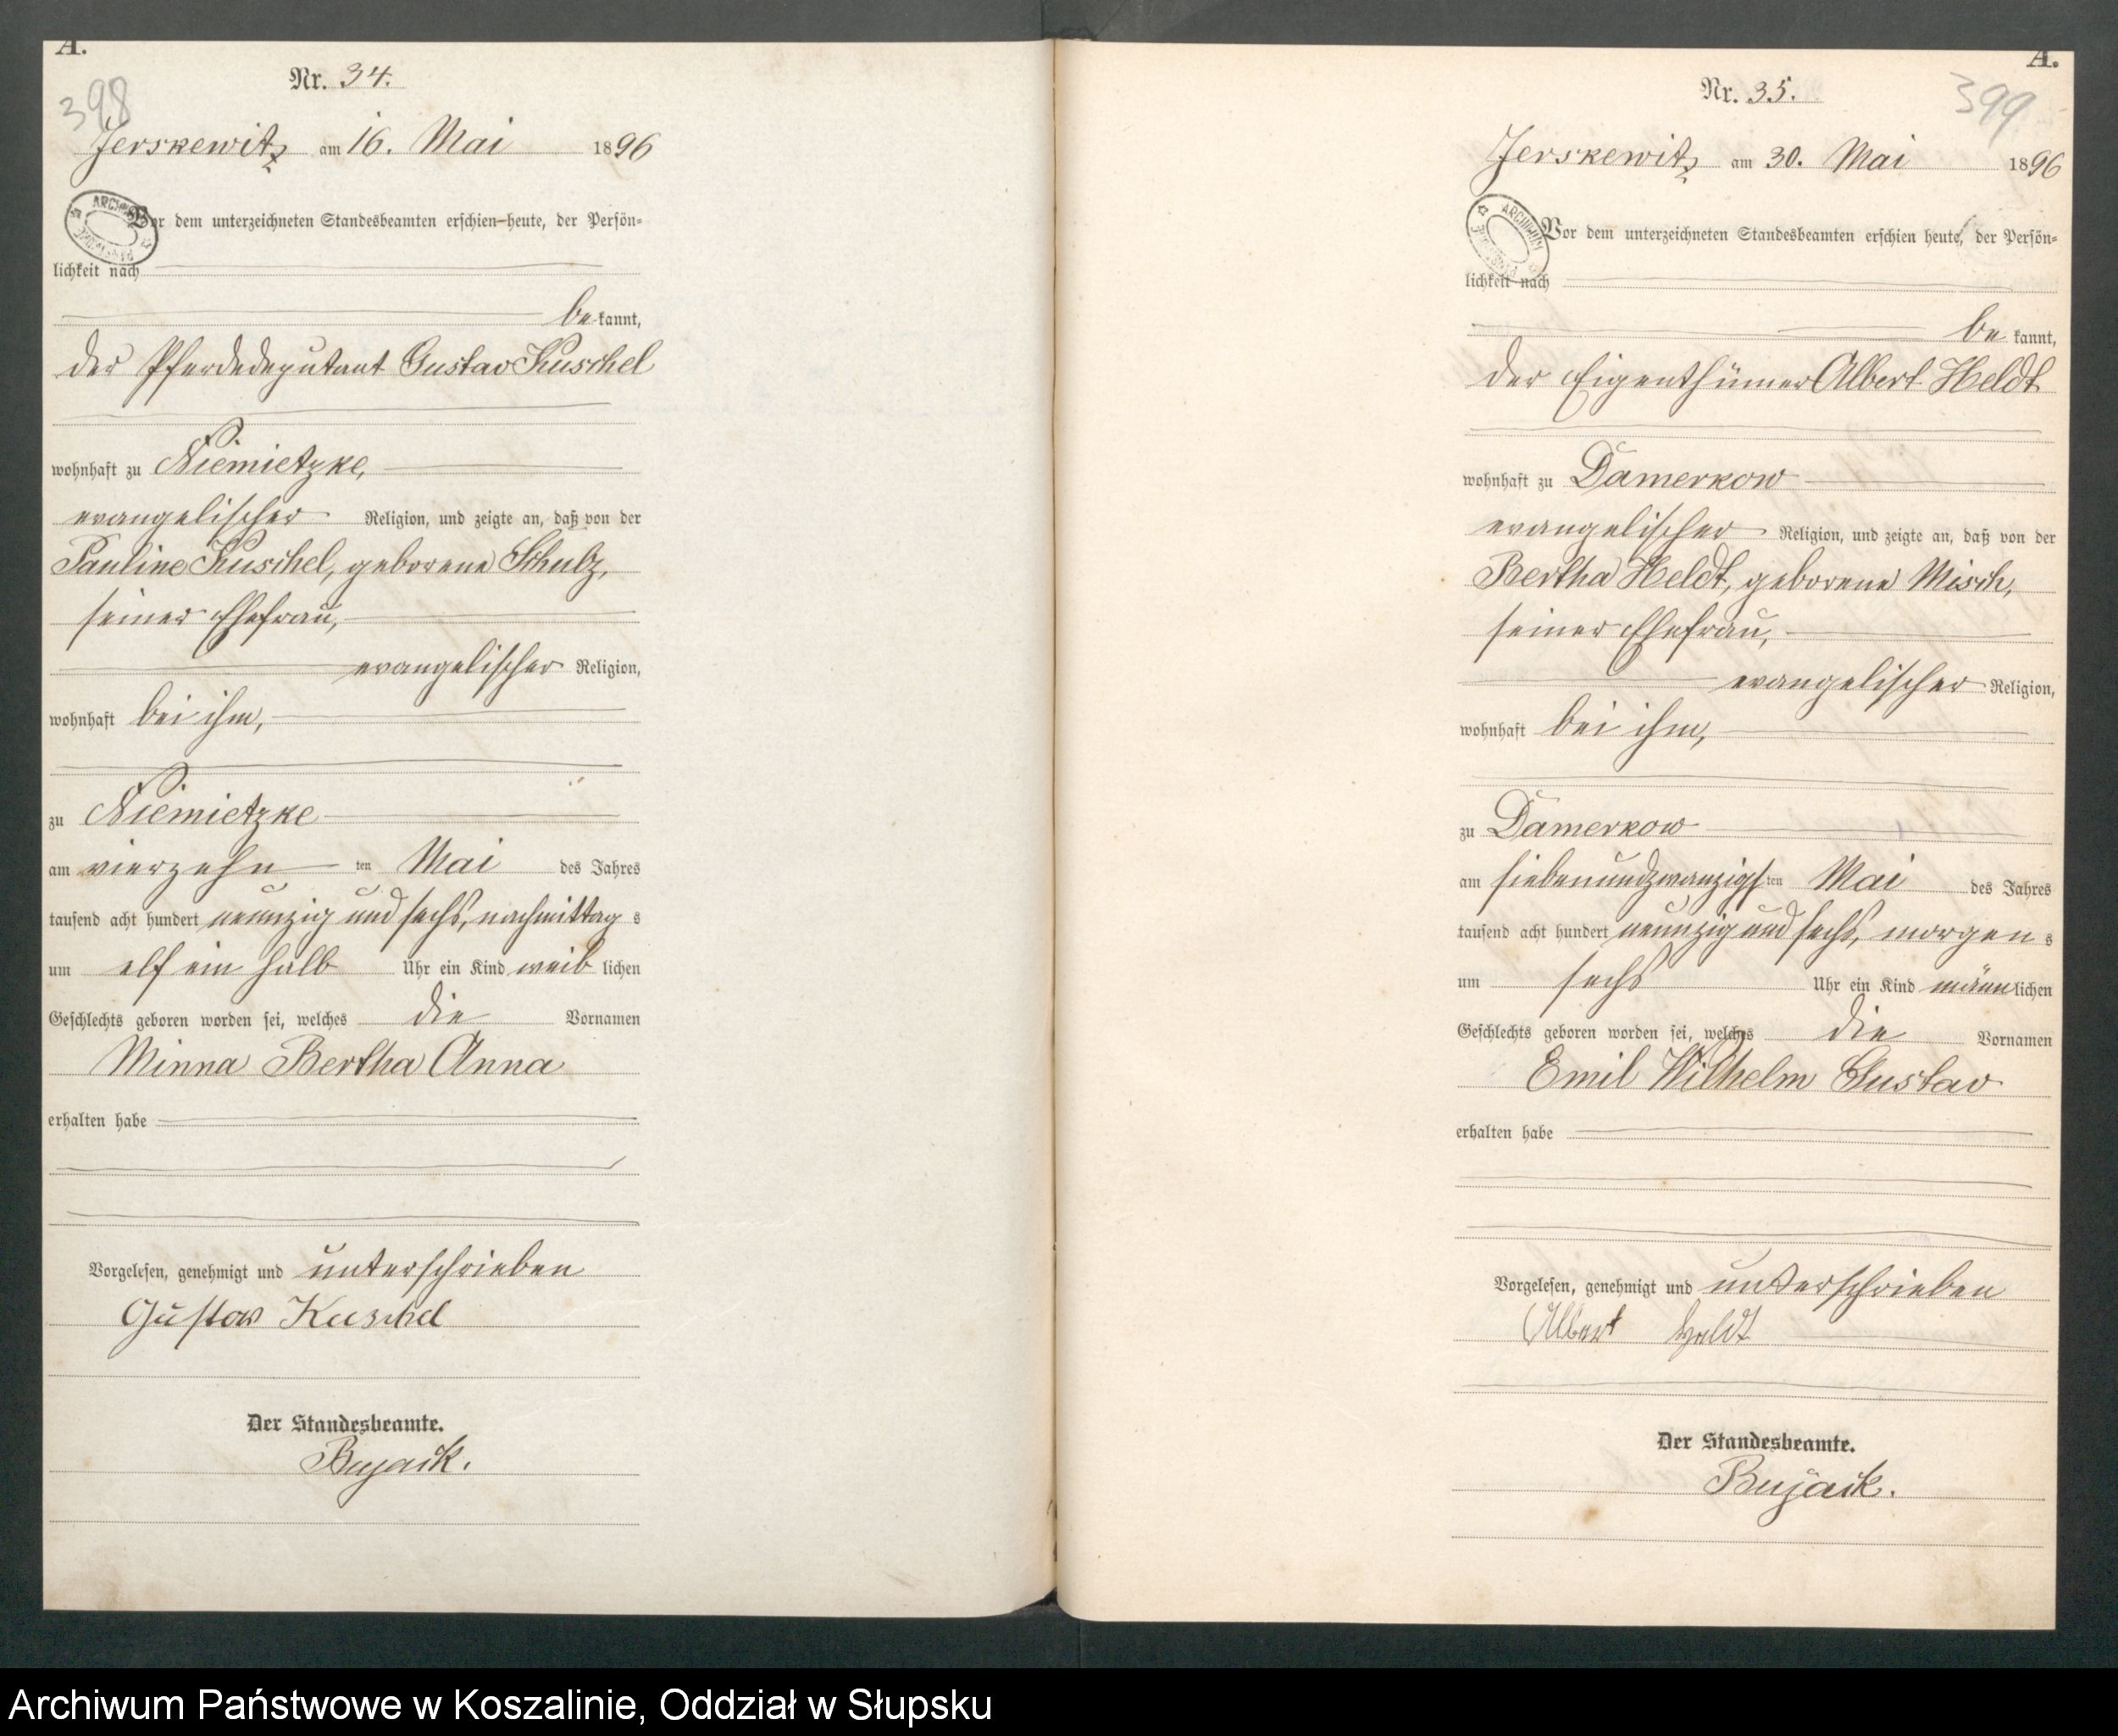 A.
398
Nr. 34.
Jerskewitz am 16. Mai 1896
Vor dem unterzeichneten Standesbeamten erschien heute, der Persön=
lichkeit nach
bekannt,
der Pferdedeputant Gustav Kuschel
wohnhaft zu Niemietzke,
evangelischer Religion, und zeigte an, daß von der
Pauline Kuschel, geborene Schulz,
seiner Ehefrau,
evangelischer Religion,
wohnhaft bei ihm,
zu Niemietzke
am vierzehn ten Mai des Jahres
tausend acht hundert neunzig und sechs, nachmittag s
um elf ein halb Uhr ein Kind weib lichen
Geschlechts geboren worden sei, welches die Vornamen
Minna Bertha Anna
erhalten habe
Vorgelesen, genehmigt und unterschrieben
Gustav Kuschel
Der Standesbeamte.
Bujack.
A.
399
Nr. 35.
Jerskewitz am 30. Mai 1896
Vor dem unterzeichneten Standesbeamten erschien heute, der Persön=
lichkeit nach
be kannt,
der Eigenthümer Albert Heldt
wohnhaft zu Damerkow
evangelischer Religion, und zeigte an, daß von der
Bertha Heldt, geborene Misch,
seiner Ehefrau,
evangelischer Religion,
wohnhaft bei ihm,
zu Damerkow
am siebenundzwanzigsten Mai des Jahres
tausend acht hundert neunzig und sechs, morgen s
um sechs Uhr ein Kind männlichen
Geschlechts geboren worden sei, welches die Vornamen
Emil Wilhelm Gustav
erhalten habe
Vorgelesen, genehmigt und unterschrieben
Albert Heldt
Der Standesbeamte.
Bujack.
Archiwum Państwowe w Koszalinie, Oddział w Słupsku